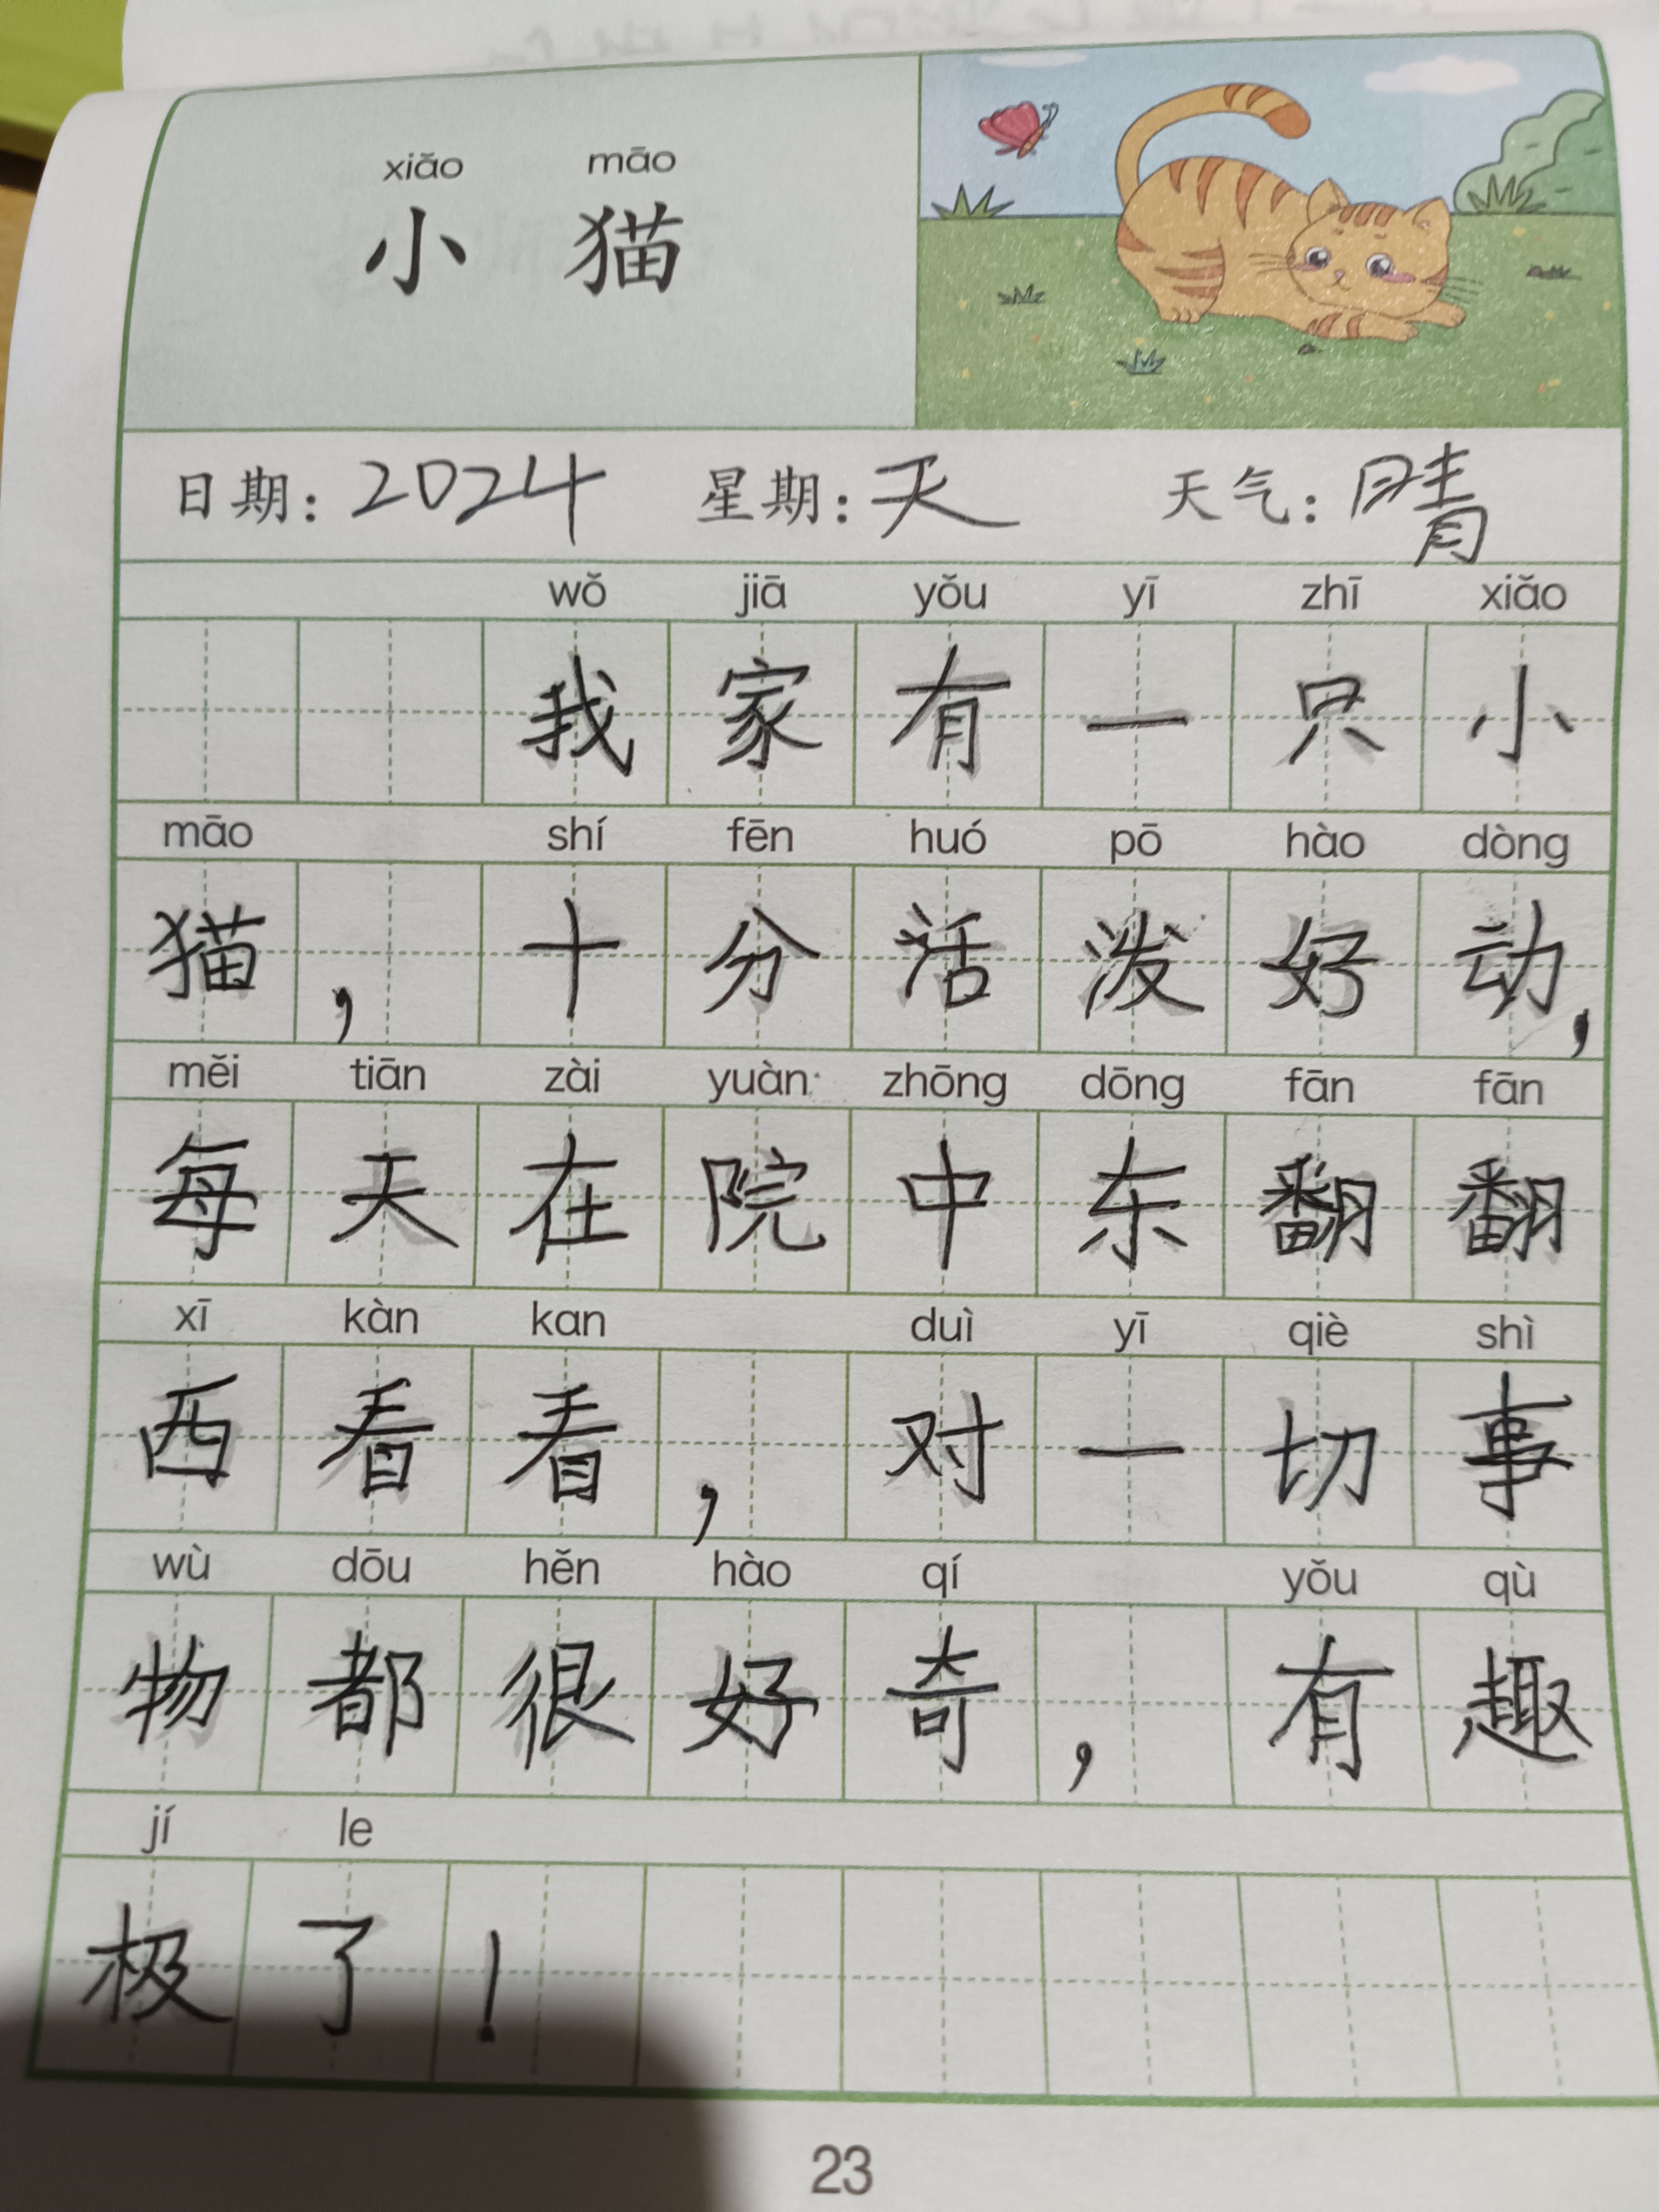 xiǎo māo
小 猫
日期：2024 星期：天 天气：晴
wǒ jiā yǒu yī zhī xiǎo
我家有一只小
māo shí fēn huó pō hào dòng
猫，十分活泼好动，
měi tiān zài yuàn zhōng dōng fān fān
每天在院中东翻翻
xī kàn kan duì yī qiè shì
西看看，对一切事
wù dōu hěn hào qí yǒu qù
物都很好奇，有趣
jí le
极了！
23